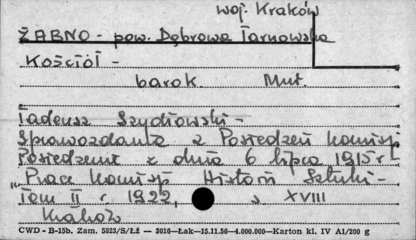 woj. Kraków
ŻABNO - pow. Dąbrowa Tarnowska
Kościół -
barok. Mur.
Tadeusz Szydłowski -
Sprawozdania z Posiedzeń Komisji
Posiedzenie z dnia 6 lipca 1915 r.
"Prace Komisji Historii Sztuki -
Tom II r. 1922, s. XVIII
Kraków
CWD - B-15b. Zam. 5823/S/Łż — 3026—Łak—15.11.56—4.000.000—Karton kl. IV A1/200 g